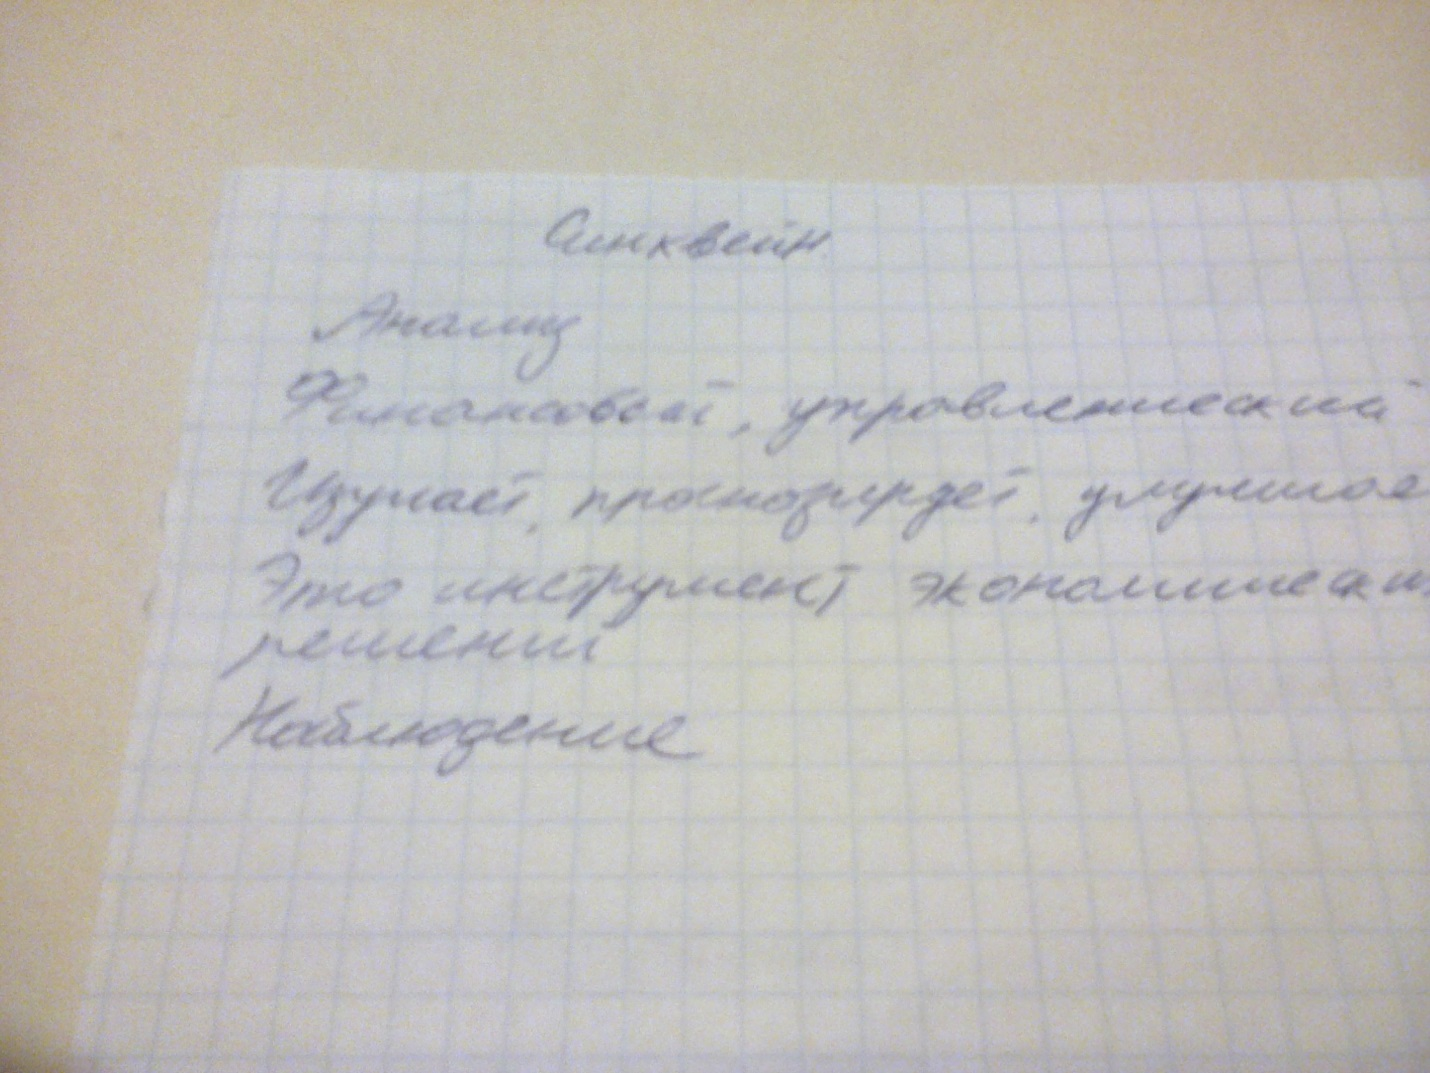 Синквейн
Анализ
Финансовый, управленческий
Изучает, прогнозирует, улучшае
Это инструмент экономически
решений
Наблюдение